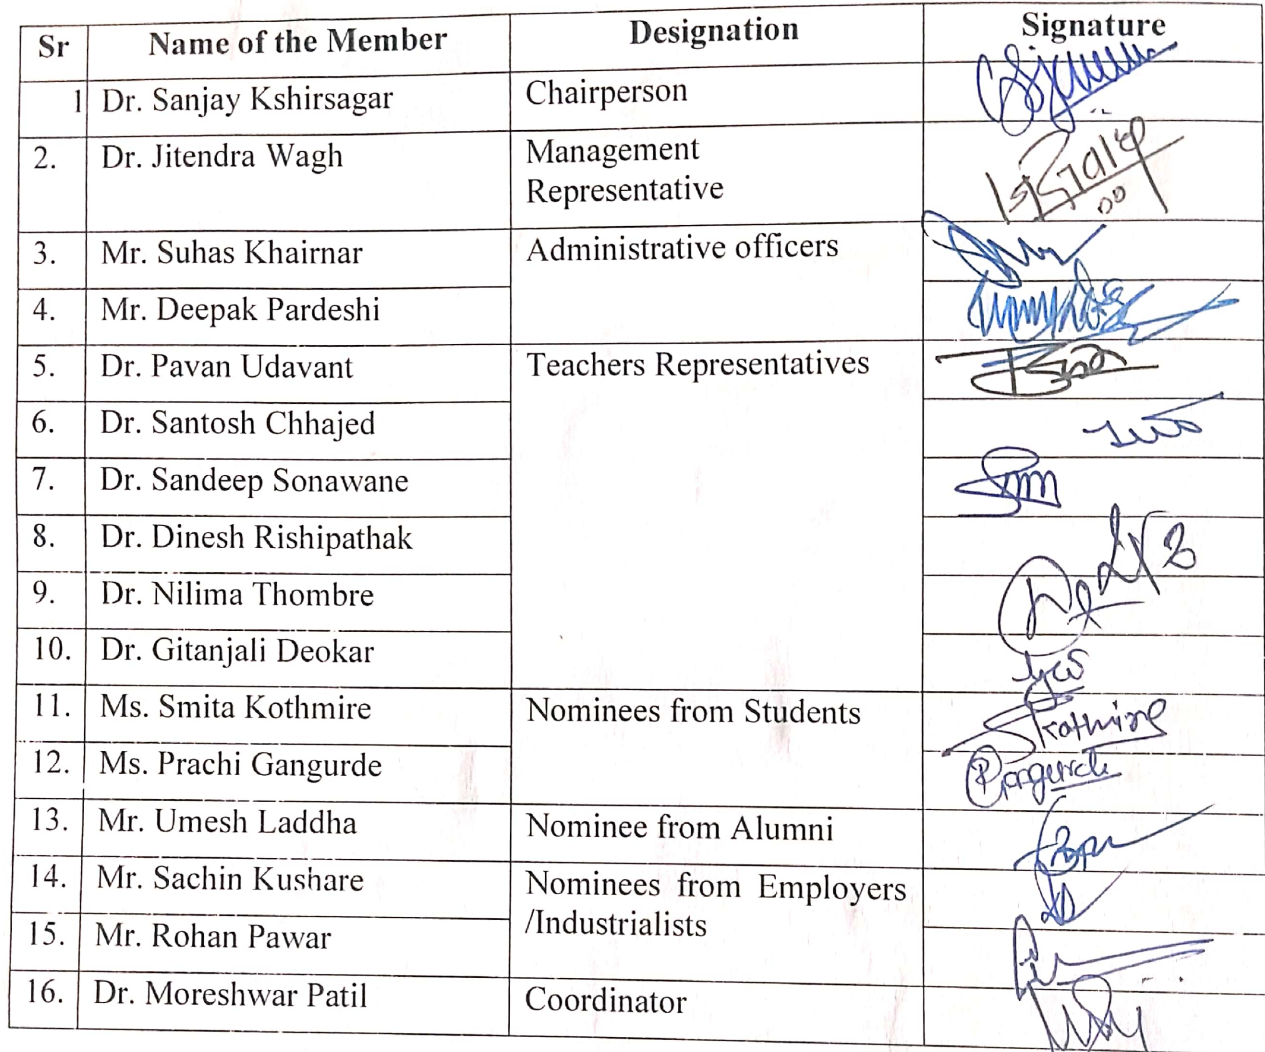 Sr Name of the Member Designation Signature
1 Dr. Sanjay Kshirsagar Chairperson
2. Dr. Jitendra Wagh Management
Representative
3. Mr. Suhas Khairnar Administrative officers
4. Mr. Deepak Pardeshi
5. Dr. Pavan Udavant Teachers Representatives
6. Dr. Santosh Chhajed
7. Dr. Sandeep Sonawane
8. Dr. Dinesh Rishipathak
9. Dr. Nilima Thombre
10. Dr. Gitanjali Deokar
11. Ms. Smita Kothmire Nominees from Students Skothmire
12. Ms. Prachi Gangurde
13. Mr. Umesh Laddha Nominee from Alumni
14. Mr. Sachin Kushare Nominees from Employers
/Industrialists
15. Mr. Rohan Pawar
16. Dr. Moreshwar Patil Coordinator